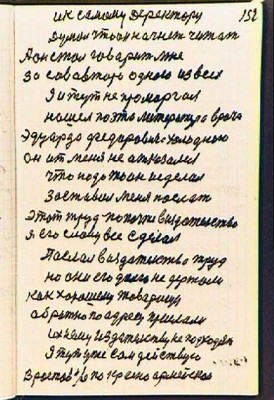 152
и к самому деректору
думал что он начнет читат
А он стал говарит мне
За совавторь одного из всех
Я и тут не проморгал
нашел поэта литературы врача
Эдуарда федаровича Холодную
Он ат меня не атказался
что подо тно и сделал
Заставил меня послат
Этот труд по почте в издателство
Я его слову все сделал
Паслал в издателство труд
но они его долго не держали
как хорошему товарищу
обратно по адресу прислали
ихнему издателству не подходит
Я тут уже сам действую
В ростов н/д по красно армейской